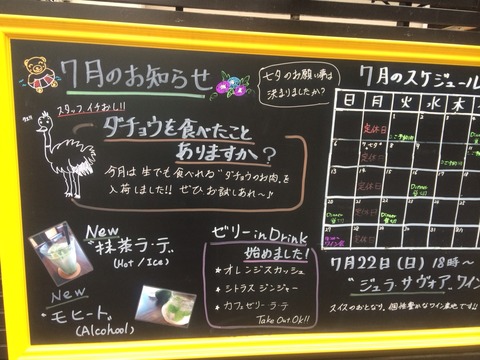 7月のお知らせ
七夕のお願い事は
決まりましたか?
スタッフ イチおし!!
ダチョウを食べたこと
ありますか?
今月は 生でも 食べれる "ダチョウのお肉"を
入荷しました!! ぜひ お試しあれ〜♪
New
"抹茶ラ・テ"
(Hot / Ice)
New
"モヒート"
(Alcohool)
ゼリー in Drink
始めました!
★オレンジスカッシュ
★シトラス ジンジャー
★カフェゼリー ラ・テ
Take Out OK!!
7月のスケジュール
日 月 火 水 木
定休日
七夕
定休日
定休日
Dinner
Dinner
定休日
定休日
7月22日(日) 18時〜
"ジュラ サヴォア" ワイン
スイスのおとなり、個性豊かなワイン産地です!!